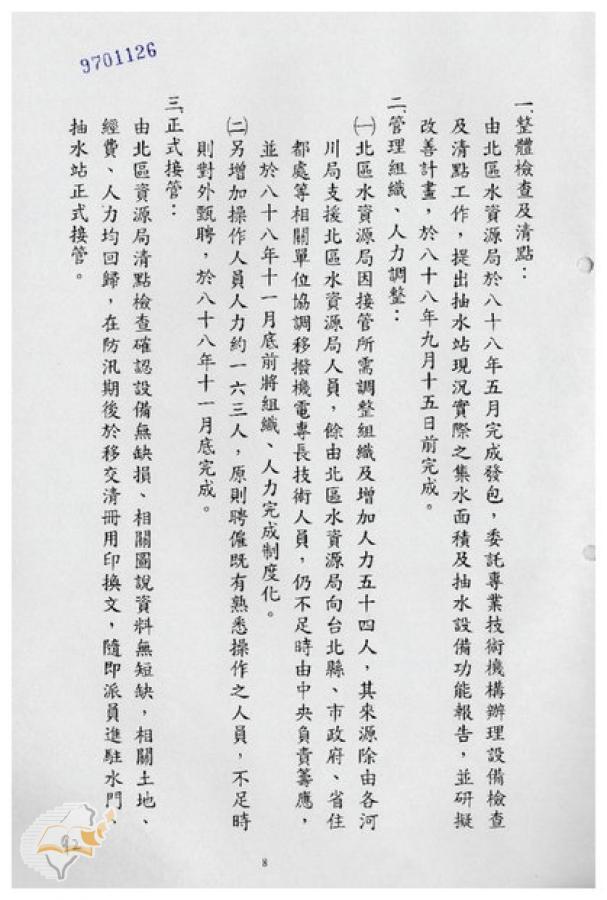 9701126
一、整體檢查及清點：
由北區水資源局於八十八年五月完成發包，委託專業技術機構辦理設備檢查
及清點工作，提出抽水站現況實際之集水面積及抽水設備功能報告，並研擬
改善計畫，於八十八年九月十五日前完成。
二、管理組織、人力調整：
㈠北區水資源局因接管所需調整組織及增加人力五十四人，其來源除由各河
川局支援北區水資源局人員，餘由北區水資源局向台北縣、市政府、省住
都處等相關單位協調移撥機電專長技術人員，仍不足時由中央負責籌應，
並於八十八年十一月底前將組織、人力完成制度化。
㈡另增加操作人員人力約一六三人，原則聘僱既有熟悉操作之人員，不足時
則對外甄聘，於八十八年十一月底完成。
三、正式接管：
由北區資源局清點檢查確認設備無缺損、相關圖說資料無短缺，相關土地、
經費、人力均回歸，在防汛期後於移交清冊用印換文，隨即派員進駐水門、
抽水站正式接管。
92
8